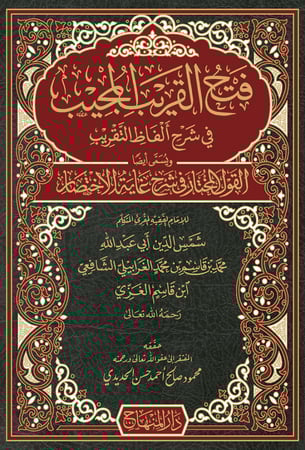 فتح القريب المجيب
في شرح ألفاظ التقريب
ويسمى أيضا
القول المختار في شرح غاية الاختصار
للإمام الفقيه المقرئ المتكلم
شمس الدين أبي عبد الله
محمد بن قاسم بن محمد الغرابيلي الشافعي
ابن قاسم الغزي
رحمه الله تعالى
حققه
المفتقر إلى عفو الله تعالى ورحمته
محمود صالح أحمد حسن الحديدي
دار المنهاج